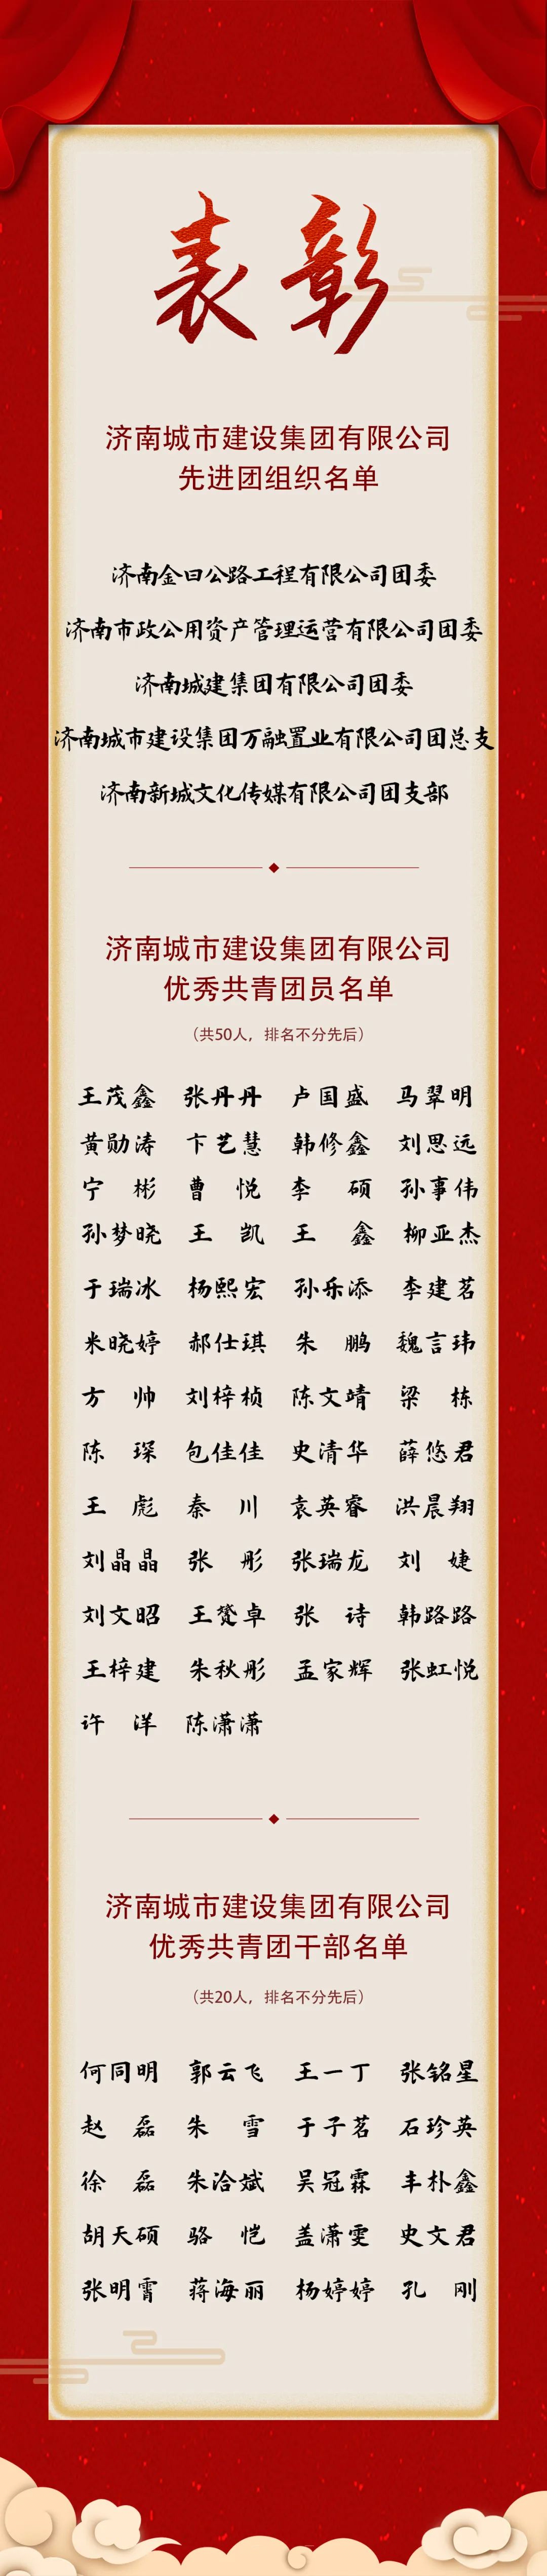 表彰
济南城市建设集团有限公司
先进团组织名单
济南金曰公路工程有限公司团委
济南市政公用资产管理运营有限公司团委
济南城建集团有限公司团委
济南城市建设集团万融置业有限公司团总支
济南新城文化传媒有限公司团支部
济南城市建设集团有限公司
优秀共青团员名单
（共50人，排名不分先后）
王茂鑫 张丹丹 卢国盛 马翠明
黄勋涛 卞艺慧 韩修鑫 刘思远
宁彬 曹悦 李硕 孙事伟
孙梦晓 王凯 王鑫 柳亚杰
于瑞冰 杨熙宏 孙乐添 李建茗
米晓婷 郝仕琪 朱鹏 魏言玮
方帅 刘梓桢 陈文靖 梁栋
陈琛 包佳佳 史清华 薛悠君
王彪 秦川 袁英睿 洪晨翔
刘晶晶 张彤 张瑞龙 刘婕
刘文昭 王赟卓 张诗 韩路路
王梓建 朱秋彤 孟家辉 张虹悦
许洋 陈潇潇
济南城市建设集团有限公司
优秀共青团干部名单
（共20人，排名不分先后）
何同明 郭云飞 王一丁 张铭星
赵磊 朱雪 于子茗 石珍英
徐磊 朱洽斌 吴冠霖 丰朴鑫
胡天硕 骆恺 盖潇雯 史文君
张明霄 蒋海丽 杨婷婷 孔刚